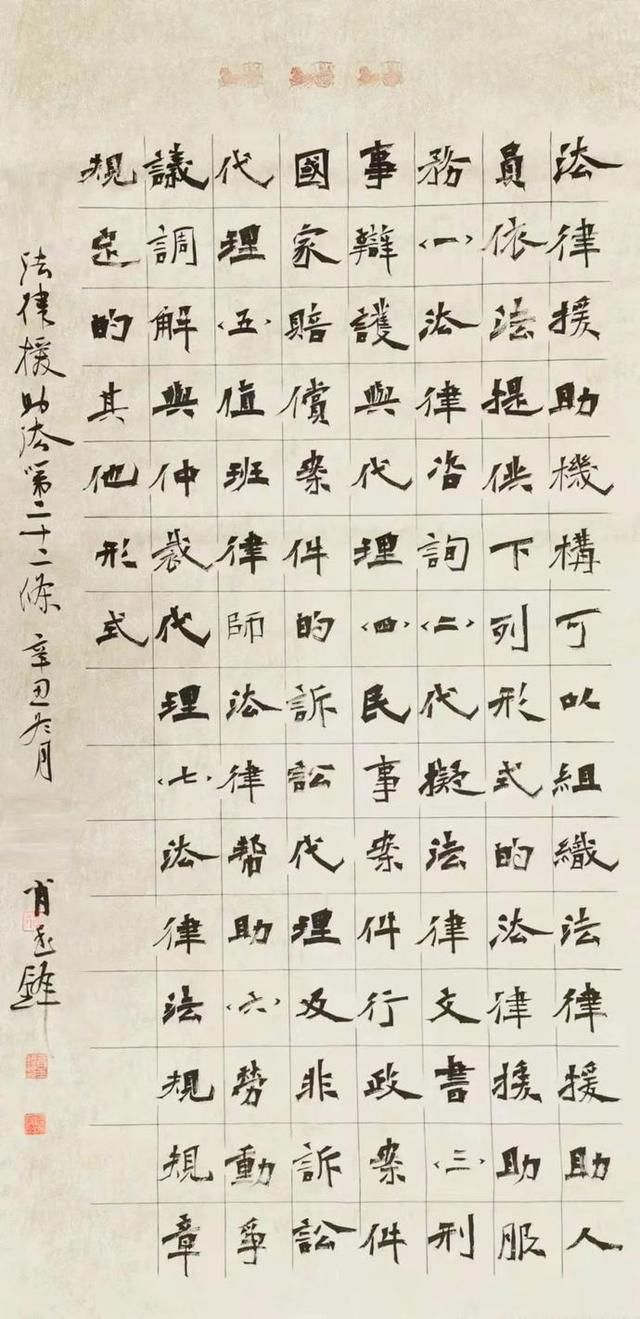 法律援助機構可以組織法律援助人
員依法提供下列形式的法律援助服
務〈一〉法律咨詢〈二〉代擬法律文書〈三〉刑
事辯護與代理〈四〉民事案件行政案件
國家賠償案件的訴訟代理及非訴訟
代理〈五〉值班律師法律帮助〈六〉勞動爭
議調解與仲裁代理〈七〉法律法規規章
規定的其他形式
法律援助法第二十二條 辛丑冬月